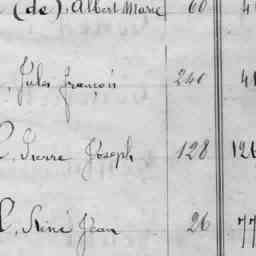 (de), Albert Marie 60
, Jules François 240
, Pierre Joseph 128 126
, Réné Jean 26 77